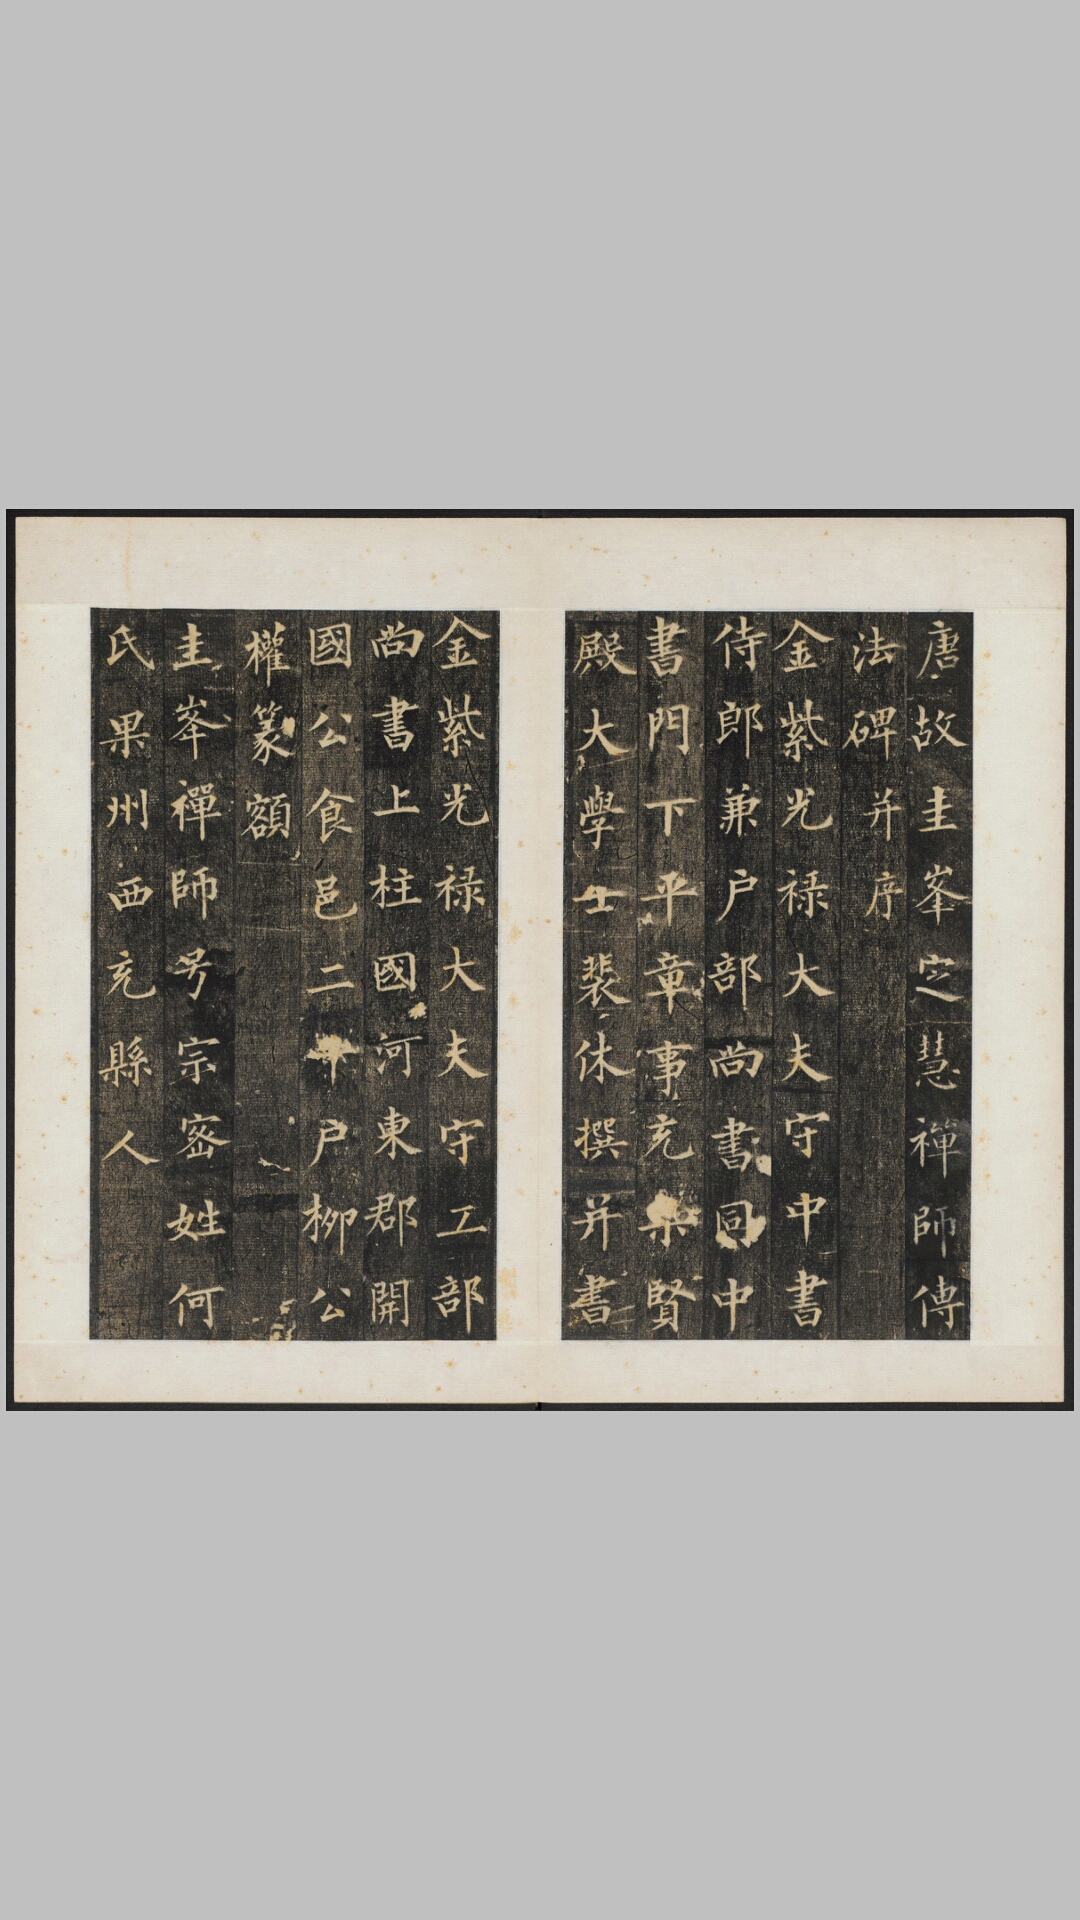 唐故圭峯定慧禪師傳
法碑并序
金紫光禄大夫守中書
侍郎兼户部尚書同中
書門下平章事充集賢
殿大學士裴休撰并書
金紫光禄大夫守工部
尚書上柱國河東郡開
國公食邑二千户柳公
權篆額
圭峯禪師号宗密姓何
氏果州西充縣人